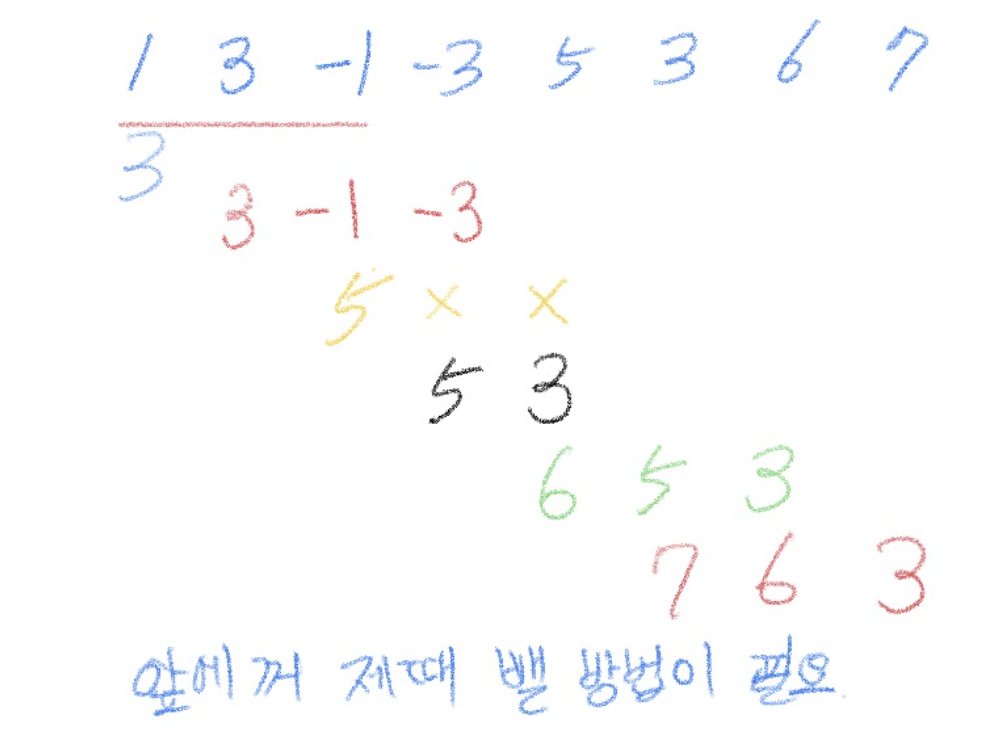 1 3 -1 -3 5 3 6 7
3
3 -1 -3
5 × ×
5 3
6 5 3
7 6 3
앞에꺼 제때 뺄 방법이 필요.